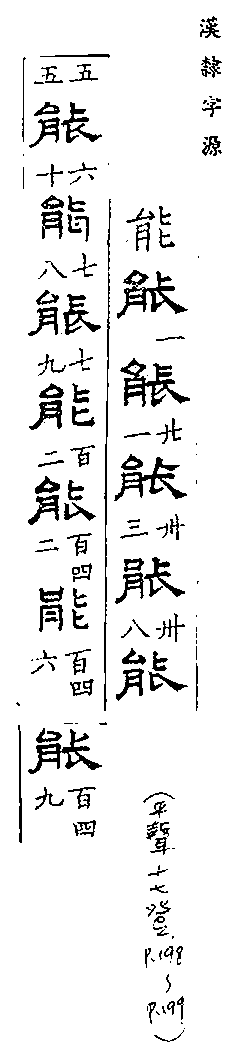 漢隸字源
能能一能廿一能卅三能卅八能
五五能六十能七八能七九能百二能百四二能百四六
能百四九
(平聲十七登, P.198~P.199)